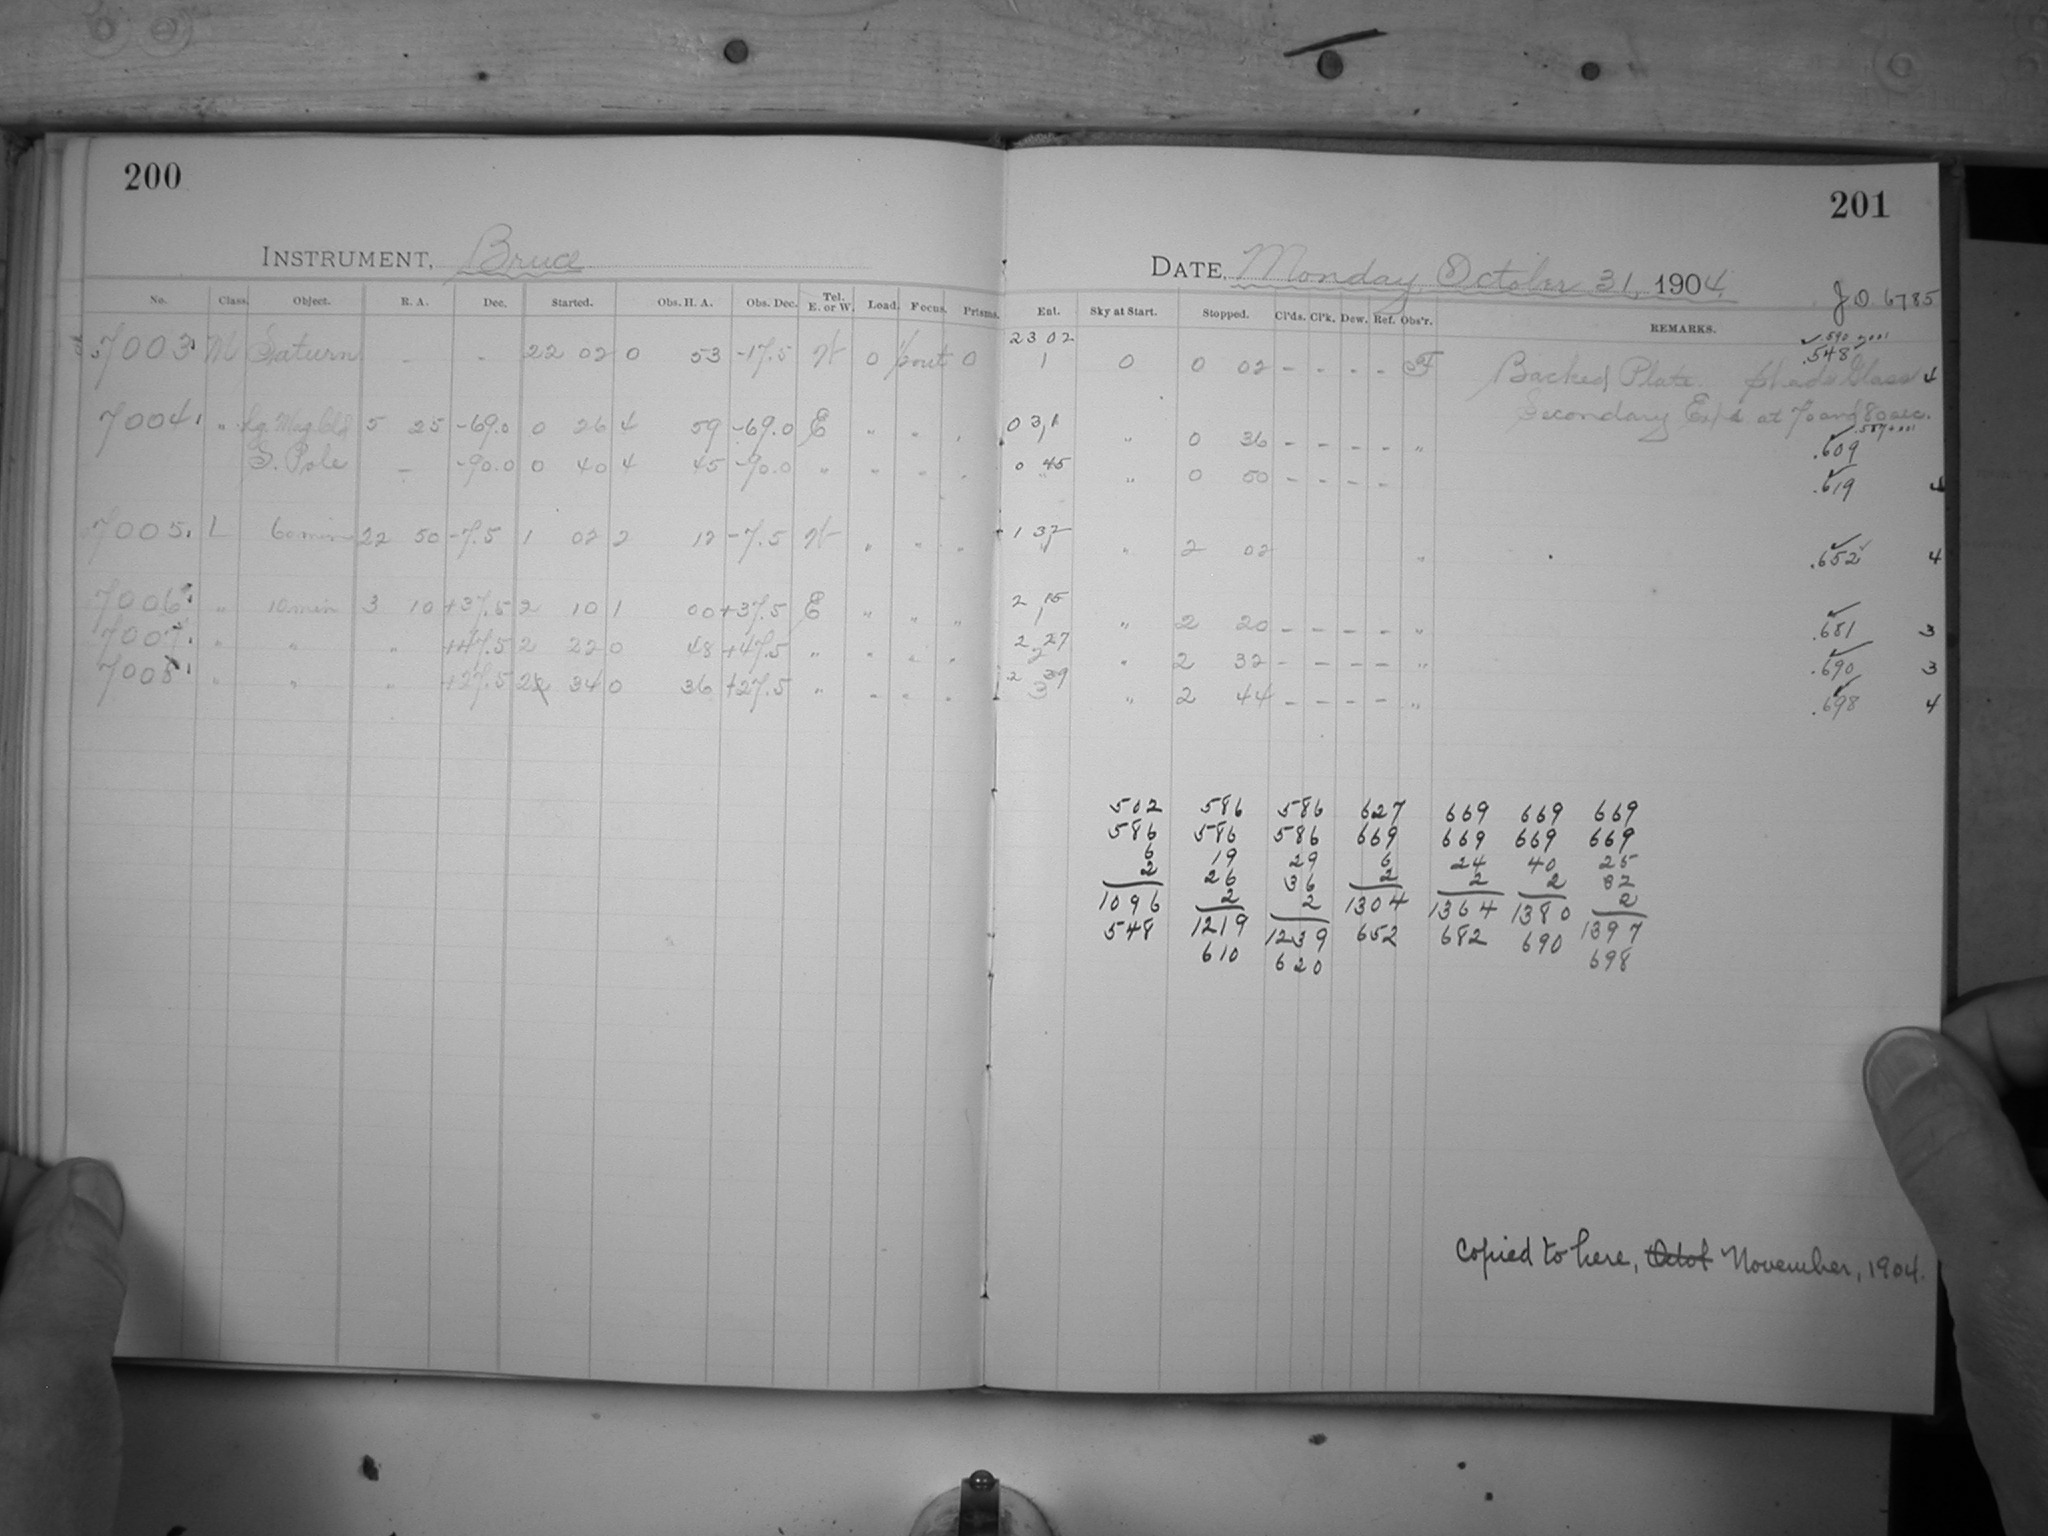 200
INSTRUMENT, Bruce
No. Class. Object. R. A. Dec. Started. Obs. H. A. Obs. Dec. Tel. E. or W. Load. Focus. Prisms.
7003 M Saturn - - 22 02 0 53 -17.5 W 0 0
7004 " Lg. Mag. Cld 5 25 -69.0 0 26 4 59 -69.0 E " " "
S. Pole - -90.0 0 40 4 45 -90.0 " " " "
7005 L 60 min 22 50 -7.5 1 02 2 12 -7.5 W " " "
7006 " 10 min 3 10 +37.5 2 10 1 00 +37.5 E " " "
7007 " " " +47.5 2 22 0 48 +47.5 " " " "
7008 " " " +27.5 2 34 0 36 +27.5 " " " "
201
DATE, Monday October 31, 1904
JD 6785
Ent. Sky at Start. Stopped. Cl'ds. Cl'k. Dew. Ref. Obs'r. REMARKS.
23 02
1 0 0 02 - - - - F Backed Plate. Glass .548 4
Secondary Exps at 70 and 80 sec.
0 31 " 0 36 - - - - " .609
0 45 " 0 50 - - - - .619 4
1 32 " 2 02 " .652 4
2 15
1 " 2 20 - - - - " .681 3
2 27
2 " 2 32 - - - - " .690 3
2 39
3 " 2 44 - - - - " .698 4
502 586 586 627 669 669 669
586 586 586 669 669 669 669
6 19 29 6 24 40 25
2 26 36 2 2 2 32
1096 2 2 1304 1364 1380 2
548 1219 1239 652 682 690 1397
610 620 698
Copied to here, November, 1904.